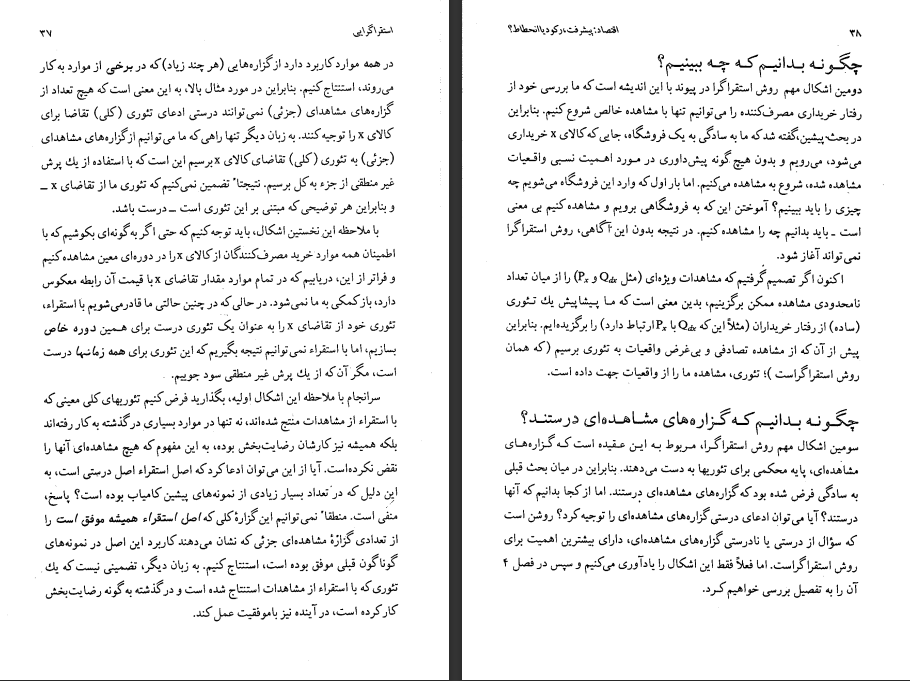 استقراگرایی ۳۷
در همه موارد کاربرد دارد از گزاره‌هایی (هر چند زیاد) که در برخی از موارد به کار
می‌روند، استنتاج کنیم. بنابراین در مورد مثال بالا، به این معنی است که هیچ تعداد از
گزاره‌های مشاهده‌ای (جزئی) نمی‌توانند درستی ادعای تئوری (کلی) تقاضا برای
کالای x را توجیه کنند. به زبان دیگر تنها راهی که ما می‌توانیم از گزاره‌های مشاهده‌ای
(جزئی) به تئوری (کلی) تقاضای کالای x برسیم این است که با استفاده از یك پرش
غیر منطقی از جزء به کل برسیم. نتیجتاً تضمین نمی‌کنیم که تئوری ما از تقاضای x ــ
و بنابراین هر توضیحی که مبتنی بر این تئوری است ــ درست باشد.
با ملاحظه این نخستین اشکال، باید توجه کنیم که حتی اگر به گونه‌ای بکوشیم که با
اطمینان همه موارد خرید مصرف‌کنندگان از کالای x را در دوره‌ای معین مشاهده کنیم
و فراتر از این، دریابیم که در تمام موارد مقدار تقاضای x با قیمت آن رابطه معکوس
دارد، باز کمکی به ما نمی‌شود. در حالی که در چنین حالتی ما قادر می‌شویم با استقراء،
تئوری خود از تقاضای x را به عنوان یک تئوری درست برای همین دوره خاص
بسازیم، اما با استقراء نمی‌توانیم نتیجه بگیریم که این تئوری برای همه زمانها درست
است، مگر آن که از یك پرش غیر منطقی سود جوییم.
سرانجام با ملاحظه این اشکال اولیه، بگذارید فرض کنیم تئوریهای کلی معینی که
با استقراء از مشاهدات منتج شده‌اند، نه تنها در موارد بسیاری در گذشته به کار رفته‌اند
بلکه همیشه نیز کارشان رضایت‌بخش بوده، به این مفهوم که هیچ مشاهده‌ای آنها را
نقض نکرده است. آیا از این می‌توان ادعا کرد که اصل استقراء اصل درستی است، به
این دلیل که در تعداد بسیار زیادی از نمونه‌های پیشین کامیاب بوده است؟ پاسخ،
منفی است. منطقاً نمی‌توانیم این گزارهٔ کلی که اصل استقراء همیشه موفق است را
از تعدادی گزارهٔ مشاهده‌ای جزئی که نشان می‌دهند کاربرد این اصل در نمونه‌های
گوناگون قبلی موفق بوده است، استنتاج کنیم. به زبان دیگر، تضمینی نیست که یك
تئوری که با استقراء از مشاهدات استنتاج شده است و در گذشته به گونه رضایت‌بخش
کار کرده است، در آینده نیز با موفقیت عمل کند.
۳۸ اقتصاد: پیشرفت، رکود یا انحطاط؟
چگونه بدانیم که چه ببینیم؟
دومین اشکال مهم روش استقراگرا در پیوند با این اندیشه است که ما بررسی خود از
رفتار خریداری مصرف‌کننده را می‌توانیم تنها با مشاهده خالص شروع کنیم. بنابراین
در بحث پیشین گفته شد که ما به سادگی به یک فروشگاه، جایی که کالای x خریداری
می‌شود، می‌رویم و بدون هیچ گونه پیش‌داوری در مورد اهمیت نسبی واقعیات
مشاهده شده، شروع به مشاهده می‌کنیم. اما بار اول که وارد این فروشگاه می‌شویم چه
چیزی را باید ببینیم؟ آموختن این که به فروشگاهی برویم و مشاهده کنیم بی معنی
است ـ باید بدانیم چه را مشاهده کنیم. در نتیجه بدون این آگاهی، روش استقراگرا
نمی‌تواند آغاز شود.
اکنون اگر تصمیم گرفتیم که مشاهدات ویژه‌ای (مثل Qdx و Px) را از میان تعداد
نامحدودی مشاهده ممکن برگزینیم، بدین معنی است که ما پیشاپیش یك تئوری
(ساده) از رفتار خریداران (مثلاً این که Qdx با Px ارتباط دارد) را برگزیده‌ایم. بنابراین
پیش از آن که از مشاهده تصادفی و بی‌غرض واقعیات به تئوری برسیم (که همان
روش استقراگراست )؛ تئوری، مشاهده ما را از واقعیات جهت داده است.
چگونه بدانیم که گزاره‌های مشاهده‌ای درستند؟
سومین اشکال مهم روش استقراگرا، مربوط به این عقیده است که گزاره‌های
مشاهده‌ای، پایه محکمی برای تئوریها به دست می‌دهند. بنابراین در میان بحث قبلی
به سادگی فرض شده بود که گزاره‌های مشاهده‌ای درستند. اما از کجا بدانیم که آنها
درستند؟ آیا می‌توان ادعای درستی گزاره‌های مشاهده‌ای را توجیه کرد؟ روشن است
که سؤال از درستی یا نادرستی گزاره‌های مشاهده‌ای، دارای بیشترین اهمیت برای
روش استقراگراست. اما فعلاً فقط این اشکال را یادآوری می‌کنیم و سپس در فصل ۴
آن را به تفصیل بررسی خواهیم کرد.